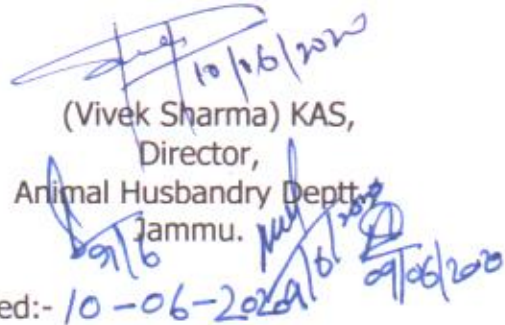 10/06/2020
(Vivek Sharma) KAS,
Director,
Animal Husbandry Deptt.
Jammu.
09/6
09/6/2020
09/06/2020
ed:- 10-06-2020